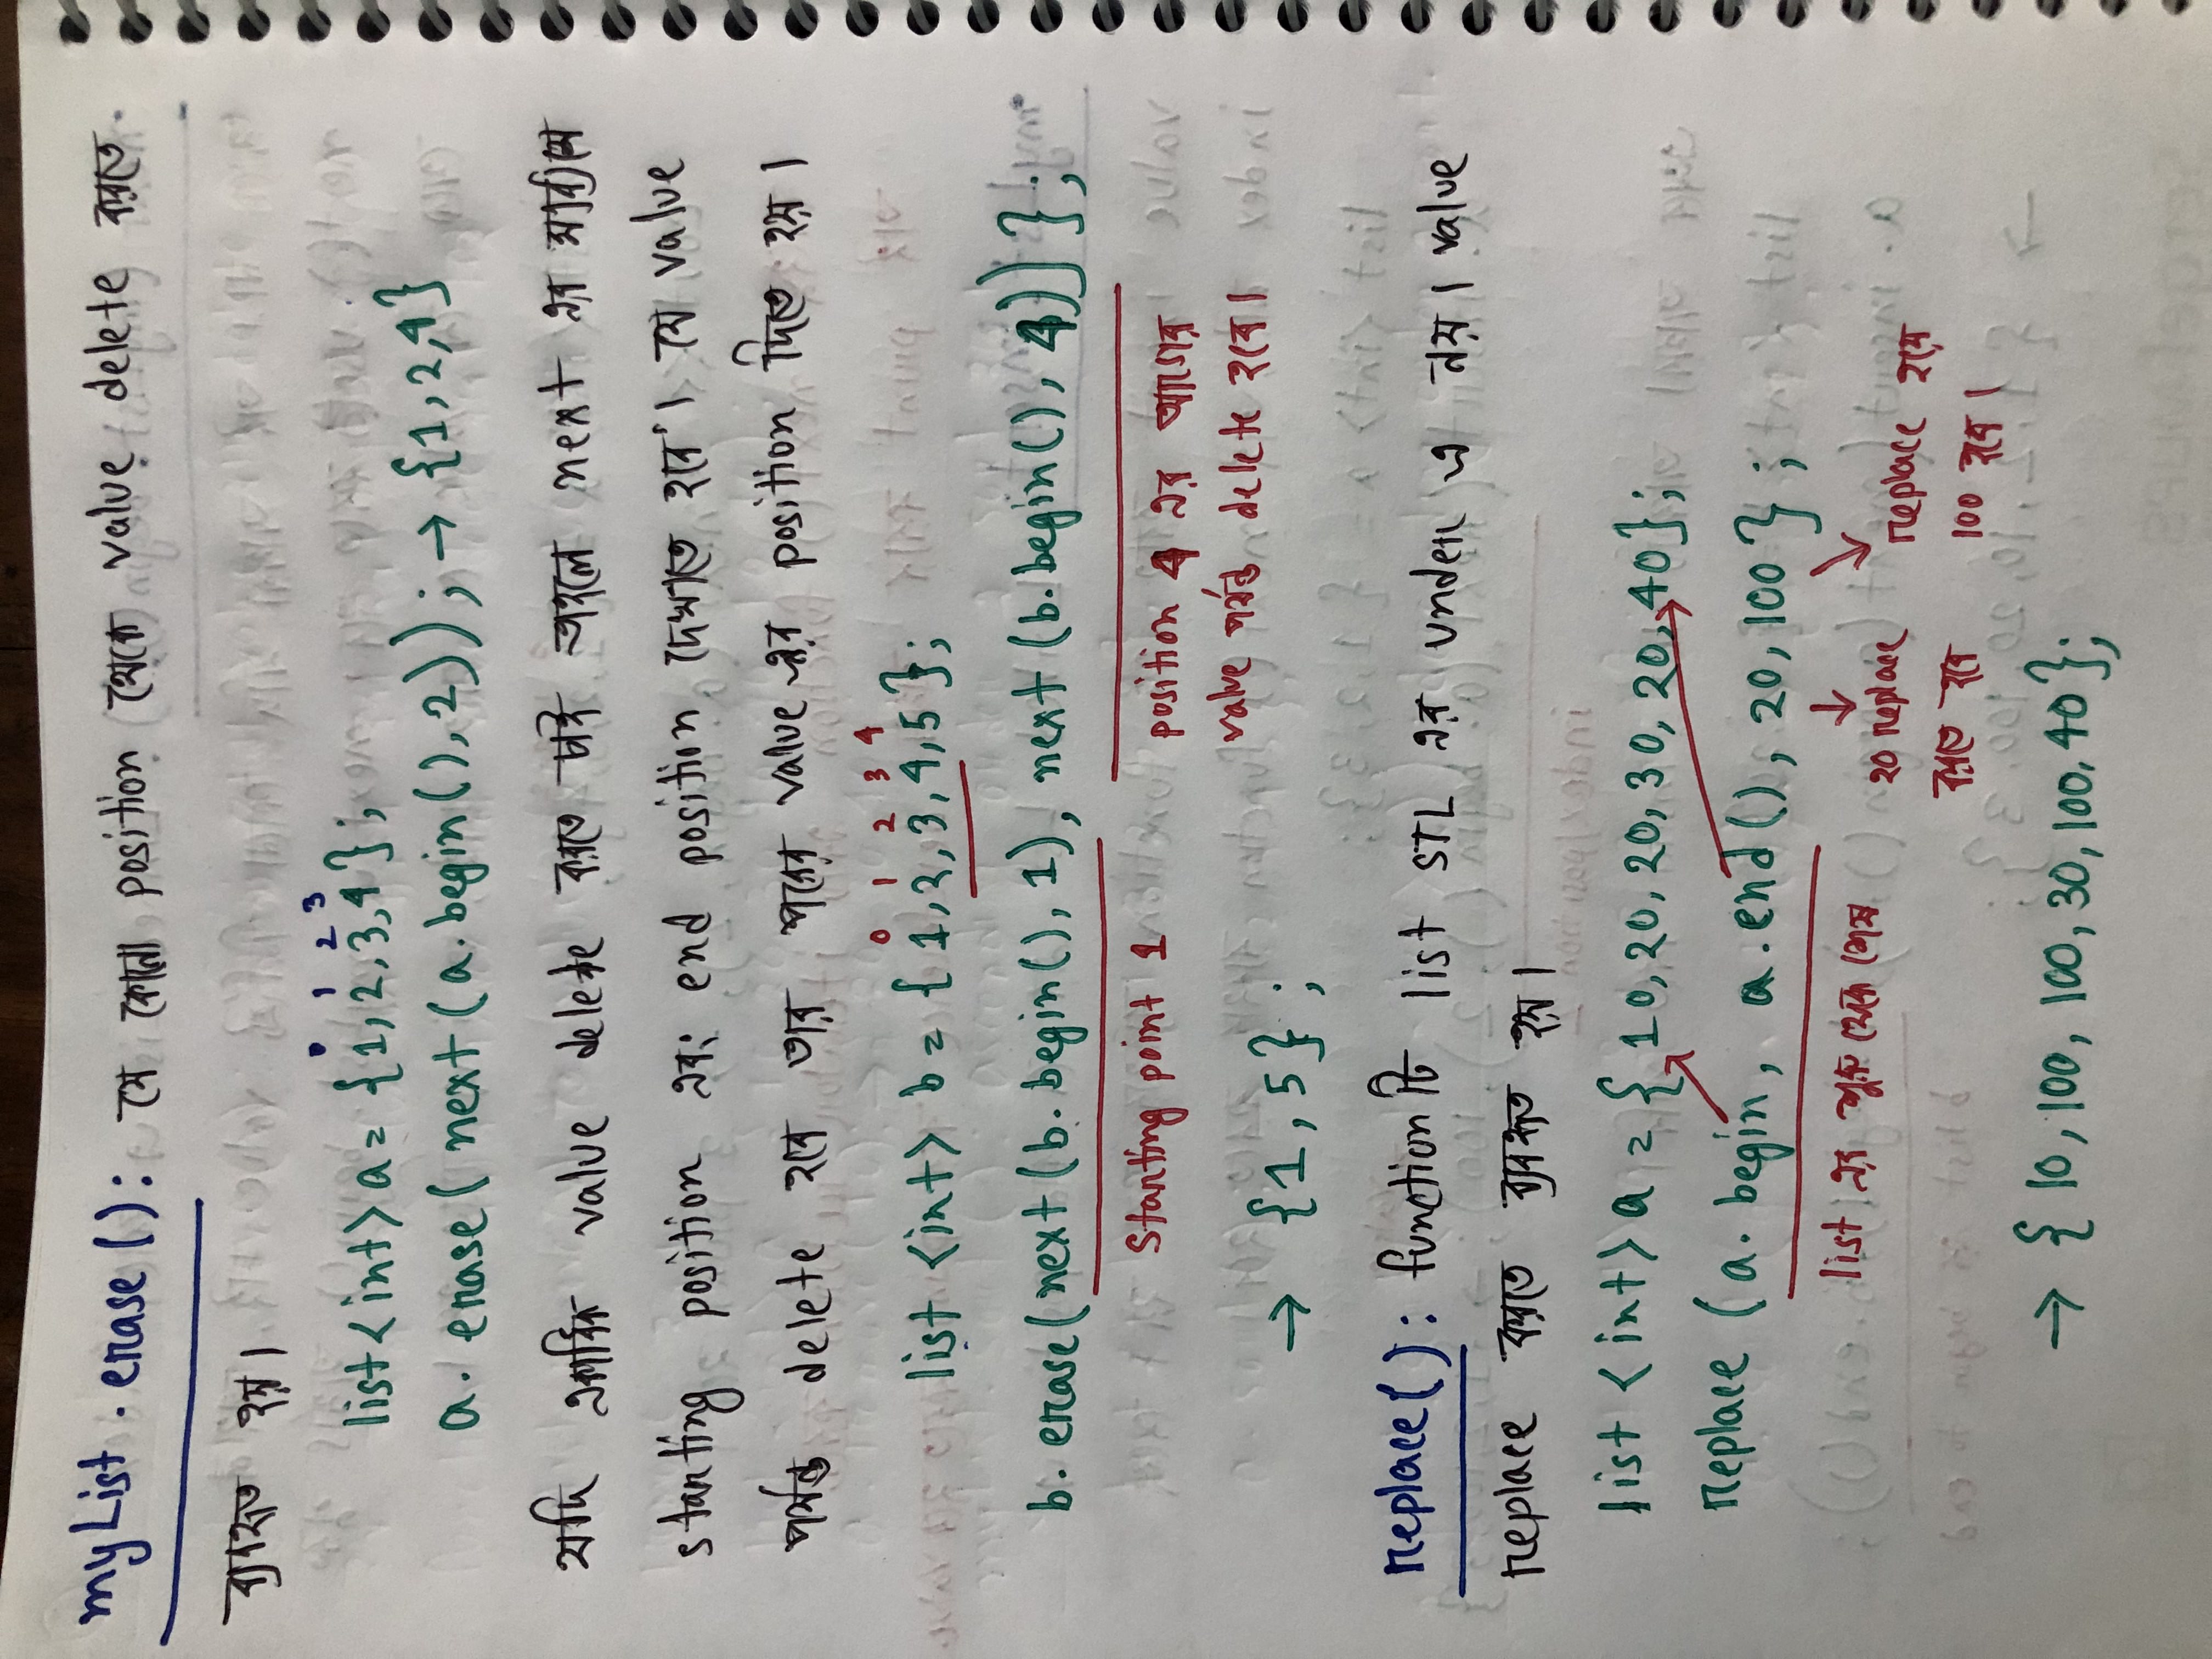 myList . erase () : যে কোনো position থেকে value delete করতে
ব্যবহৃত হয়।
0 1 2 3
list<int> a = {1, 2, 3, 4};
a. erase( next (a. begin(), 2)); → {1, 2, 4}
যদি একাধিক value delete করতে চাই তাহলে next এর মাধ্যমে
starting position এবং end position দেখাতে হবে। যে value
পর্যন্ত delete হবে তার পরের value এর position দিতে হয়।
0 1 2 3 4
list <int> b = { 1, 2, 3, 4, 5 };
b. erase( next (b. begin(), 1), next (b. begin(), 4)) };
Starting point 1
position 4 এর আগের
value পর্যন্ত delete হবে।
→ {1, 5} ;
replace() : function টি list STL এর under এ নয়। value
replace করতে ব্যবহৃত হয়।
list <int> a = { 10, 20, 20, 30, 20, 40};
replace (a. begin, a. end(), 20, 100 } ;
list এর শুরু থেকে শেষ
20 replace
করতে হবে
replace হয়ে
100 হবে।
→ { 10, 100, 100, 30, 100, 40 };